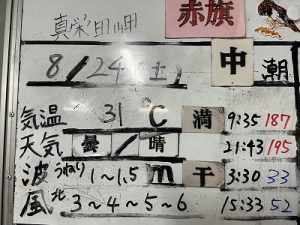 真栄田岬 赤旗
8/24(土) 中潮
気温 31℃ 満 9:35 187
天気 曇/晴 21:43 195
波 うねり 1~1.5m 干 3:30 33
風 北 3~4~5~6 15:33 52